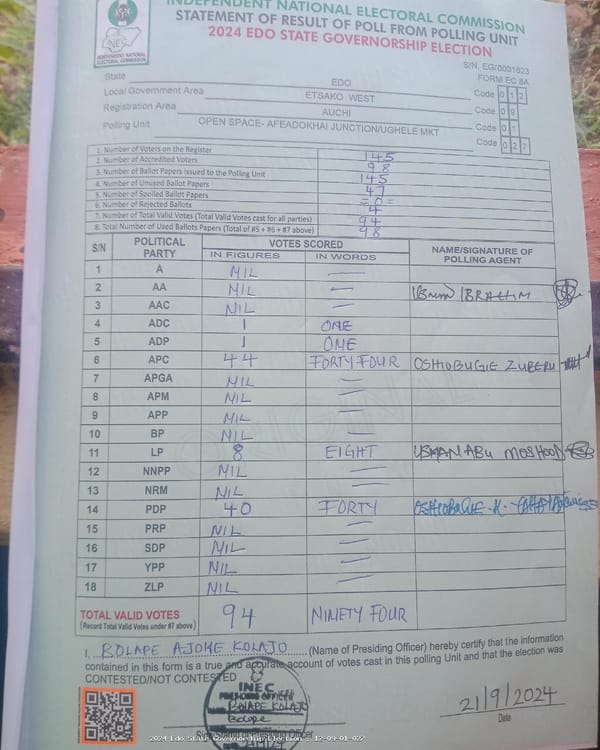 INDEPENDENT NATIONAL ELECTORAL COMMISSION
STATEMENT OF RESULT OF POLL FROM POLLING UNIT
2024 EDO STATE GOVERNORSHIP ELECTION
INEC
INDEPENDENT NATIONAL ELECTORAL COMMISSION
S/N: EG/0001623
FORM EC 8A
State EDO
Local Government Area ETSAKO WEST Code 0 1 2
Registration Area AUCHI Code 0 9
Polling Unit OPEN SPACE- AFEADOKHAI JUNCTION/UGHELE MKT Code 0 1
Code 0 2 7
1. Number of Voters on the Register 145
2. Number of Accredited Voters 98
3. Number of Ballot Papers issued to the Polling Unit 145
4. Number of Unused Ballot Papers 47
5. Number of Spoiled Ballot Papers =0=
6. Number of Rejected Ballots 4
7. Number of Total Valid Votes (Total Valid Votes cast for all parties) 94
8. Total Number of Used Ballots Papers (Total of #5 + #6 + #7 above) 98
S/N POLITICAL PARTY VOTES SCORED NAME/SIGNATURE OF POLLING AGENT
IN FIGURES IN WORDS
1 A NIL
2 AA NIL IBRAHIM
3 AAC NIL
4 ADC 1 ONE
5 ADP 1 ONE
6 APC 44 FORTY FOUR OSHIOBUGIE ZUBERU
7 APGA NIL
8 APM NIL
9 APP NIL
10 BP NIL
11 LP 8 EIGHT USMAN ABU MOSHOOD
12 NNPP NIL
13 NRM NIL
14 PDP 40 FORTY
15 PRP NIL
16 SDP NIL
17 YPP NIL
18 ZLP NIL
TOTAL VALID VOTES 94 NINETY FOUR
(Record Total Valid Votes under #7 above)
I, BOLAPE AJOKE KOLAJO (Name of Presiding Officer) hereby certify that the information
contained in this form is a true and accurate account of votes cast in this polling Unit and that the election was
CONTESTED/NOT CONTESTED
INEC
PRESIDING OFFICER
BOLAPE KOLAJO
Bolape
21/9/2024
Date
2024 Edo State Governorship Election - 12-09-01-027